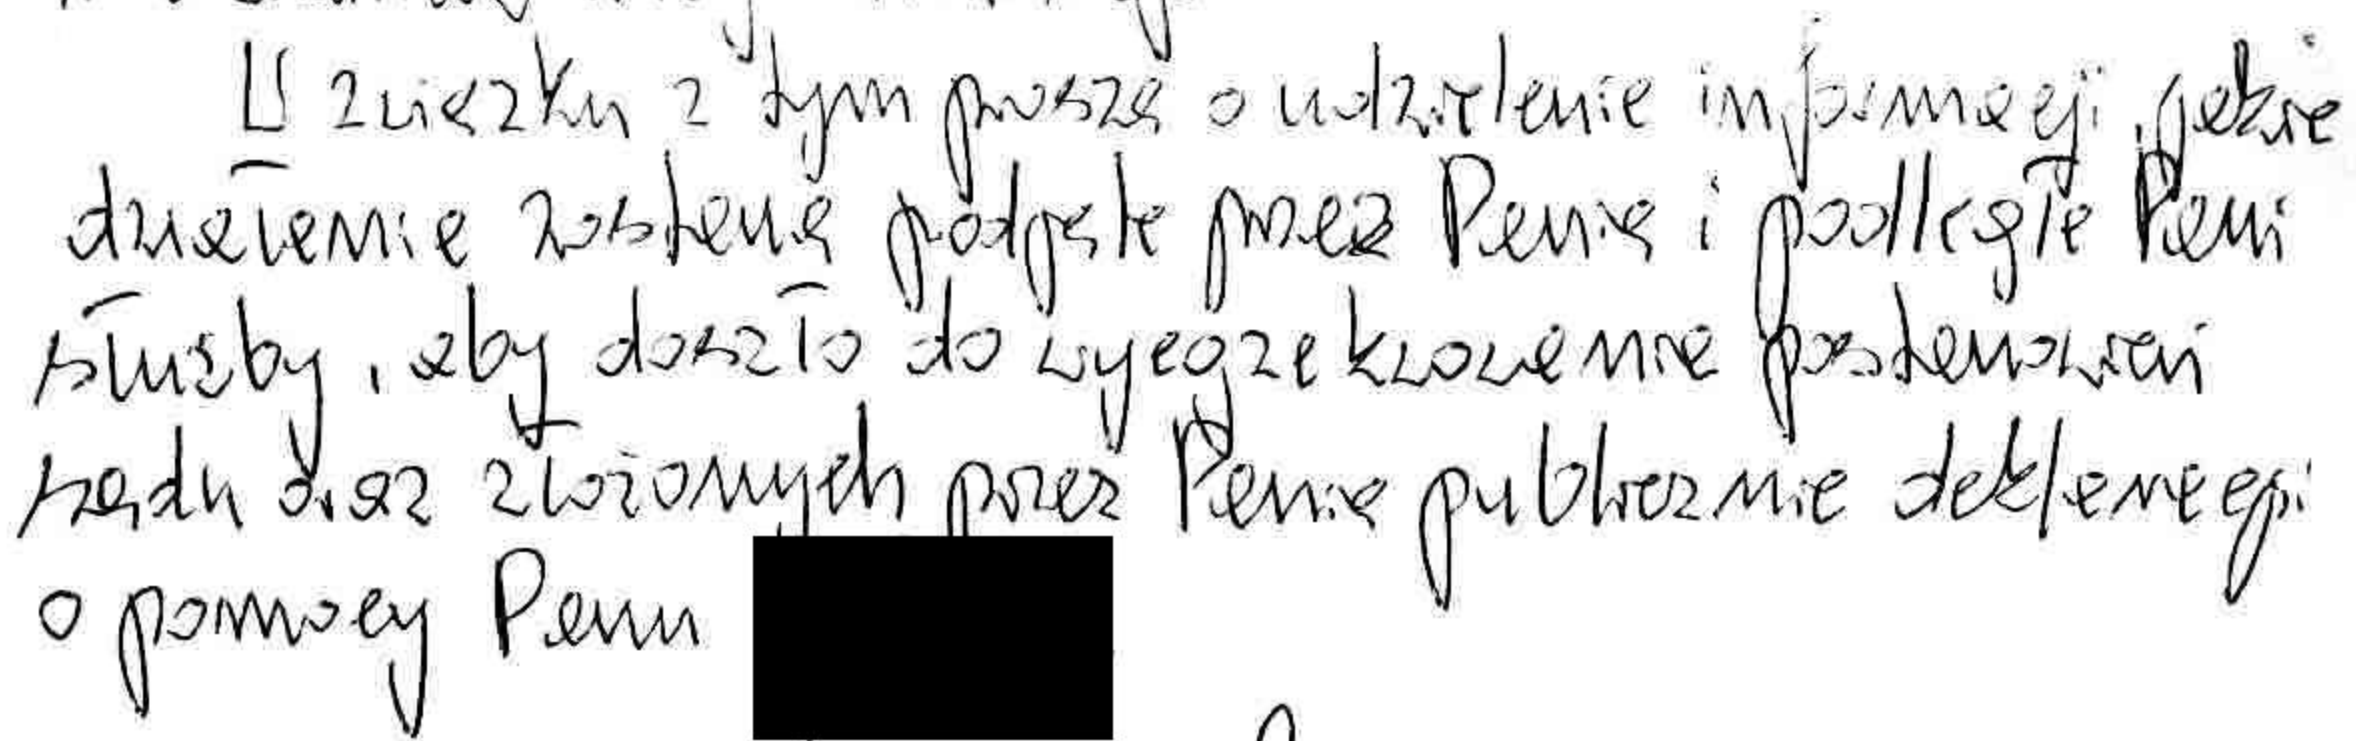 W związku z tym proszę o udzielenie informacji, jakie
działania zostaną podjęte przez Panią i podległe Pani
służby, aby doszło do wyegzekwowania postanowień
sądu oraz złożonych przez Panią publicznie deklaracji
o pomocy Panu